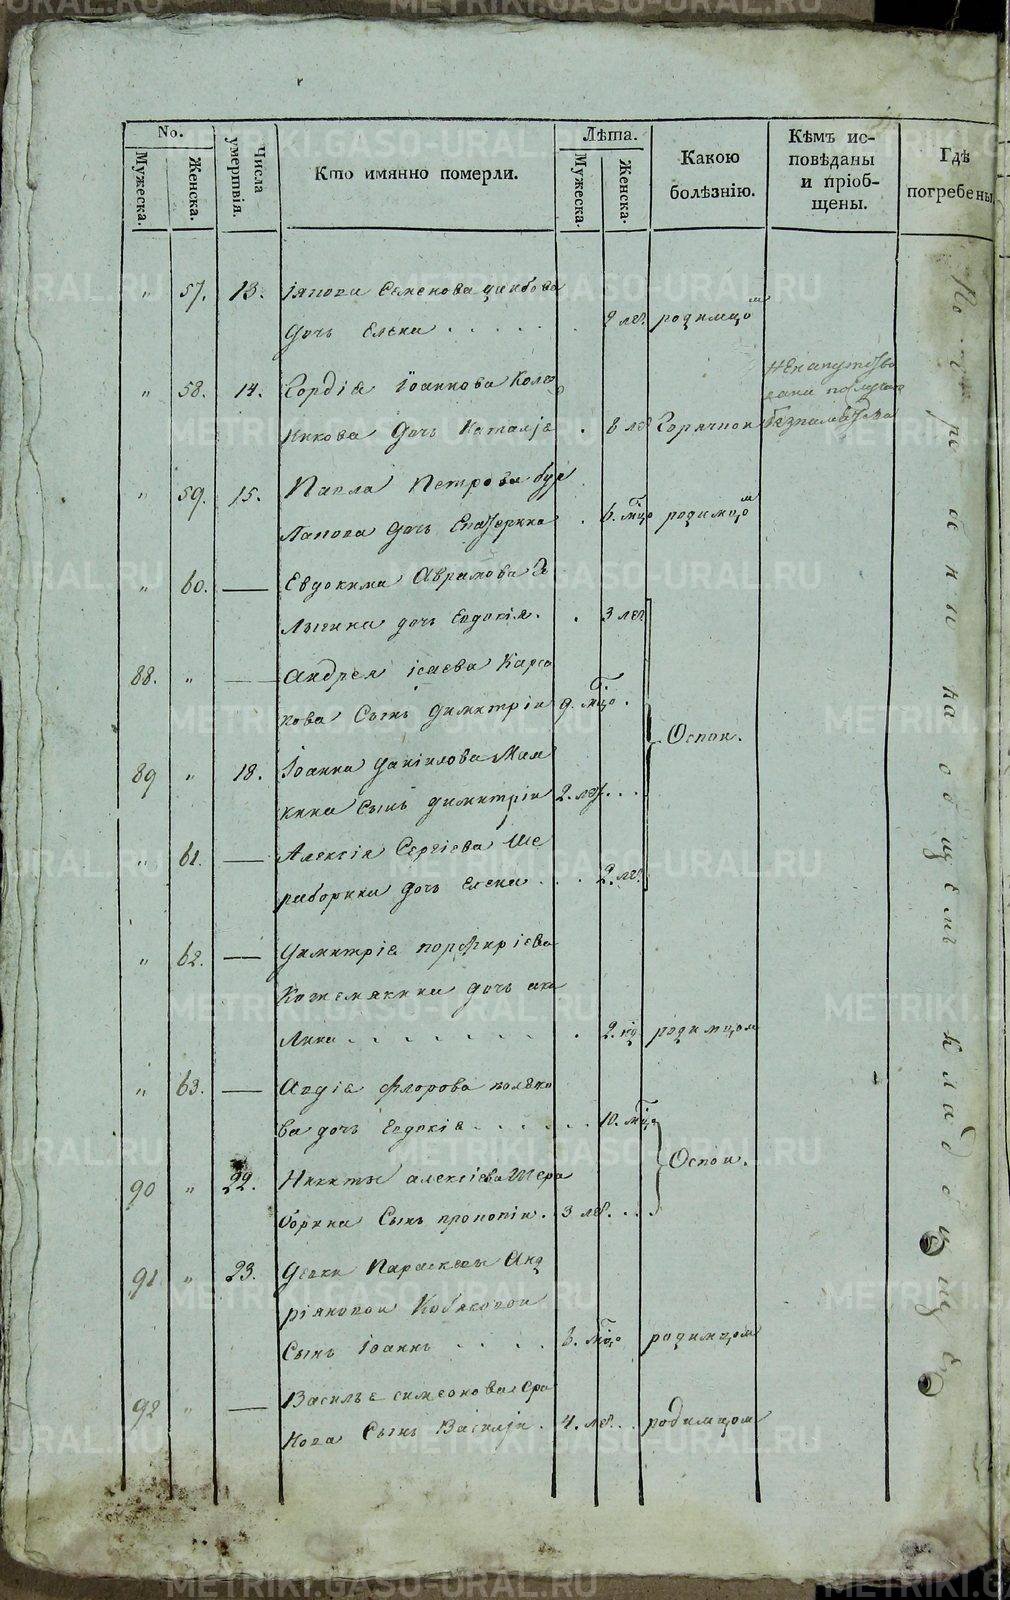 METRIKI.GASO-URAL.RU
No.
Мужеска.
Женска.
Числа умертвія.
Кто имянно померли.
Лѣта.
Мужеска.
Женска.
Какою болѣзнію.
Кѣмъ исповѣданы и пріобщены.
Гдѣ погребены.
" 57. 13. Іякова Семенова
дочь Елена . . . . . 2 лѣт. родимцом
" 58. 14. Гордія Іоаннова Коло
кова дочь Наталіе . 8 лѣт Горячкои
" 59. 15. Павла Петрова
дочь Екатерина . 6. мцо родимцом
" 60. — Евдокима Аврамова
дочь Евдокія . . 3 лѣт
88. " — Андрея Ісаева Карса
кова Сынъ Димитріи 9. мцо .
Оспои.
89 " 18. Іоанна Даніилова Мам
кина Сынъ Димитріи 2. лѣт. . .
" 61. — Алексія Сергіева Ше
раборина дочь Елена . . . 2. лѣт.
" 62. — Димитріе Порфиріева
Кожемякина дочь аки
лина . . . . . . . . 2. родимцом
" 63. — Авдіе Флорова поляко
ва дочь Евдокіе . . . . . . 10. мцо
Оспои.
90 " 22. Никиты алексіева Шера
борина Сынъ прокопіи . 3 лѣт. . .
91 " 23. Девки Параскевы Анд
ріяновои Кобяковои
Сынъ Іоаннъ . . . . 6. мцо родимцом
92 " — Василье симеонова
кова Сынъ Василіи . 4. лѣт. . . родимцом
Погребены на общемъ кладбище